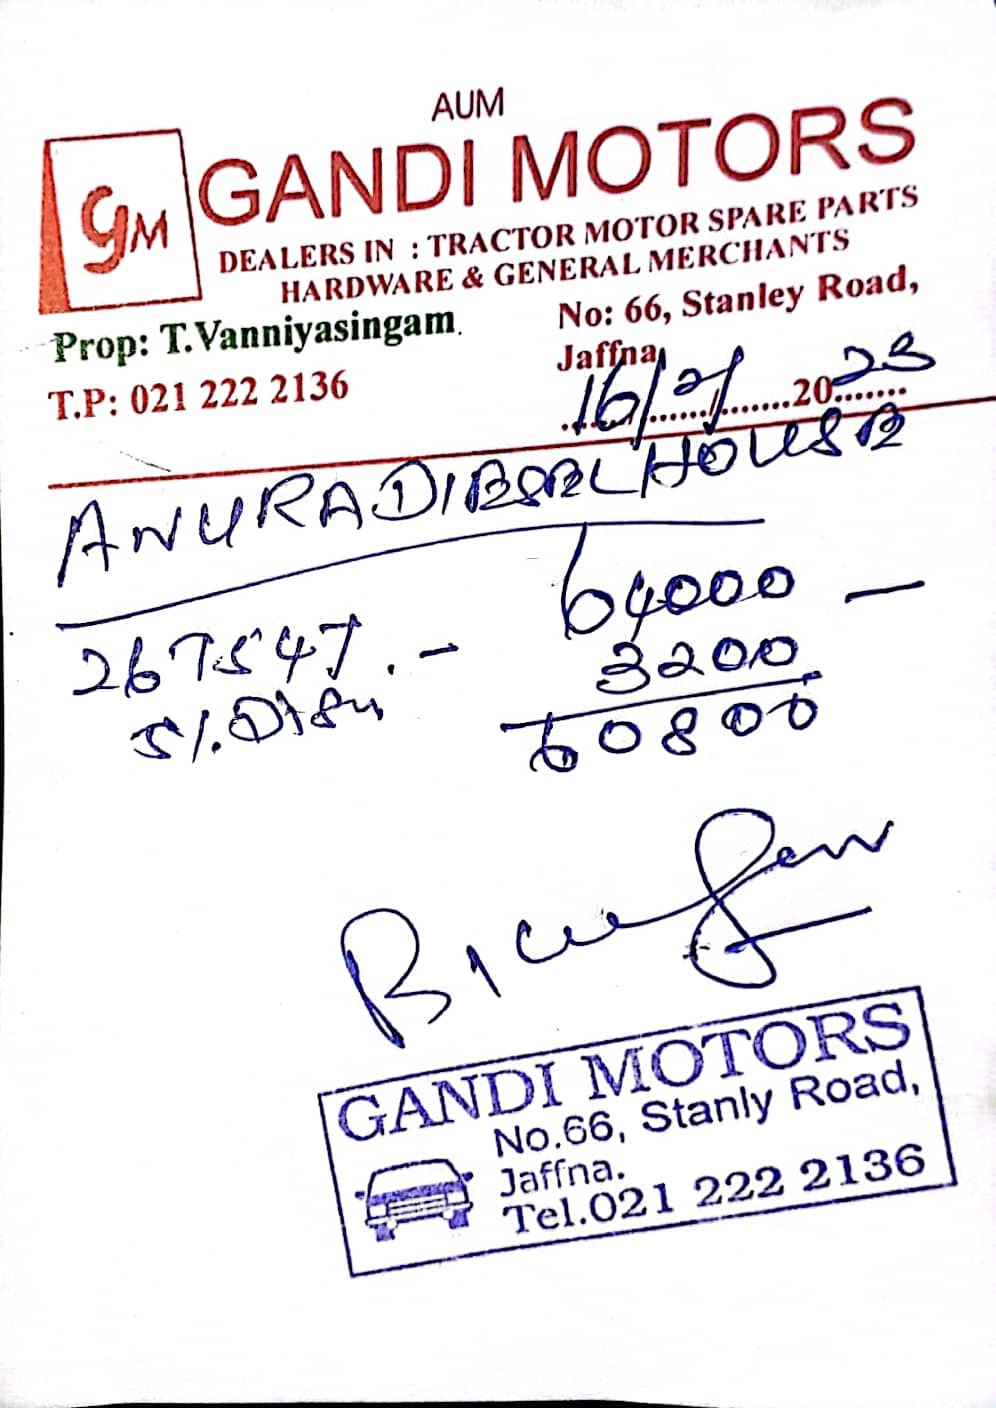 AUM
GM GANDI MOTORS
DEALERS IN : TRACTOR MOTOR SPARE PARTS
HARDWARE & GENERAL MERCHANTS
Prop: T.Vanniyasingam.
No: 66, Stanley Road,
Jaffna,
T.P: 021 222 2136
16/2/2023
ANURA DIESEL HOUSE
267547.- 64000 -
5%. 3200
60800
GANDI MOTORS
No.66, Stanly Road,
Jaffna.
Tel.021 222 2136